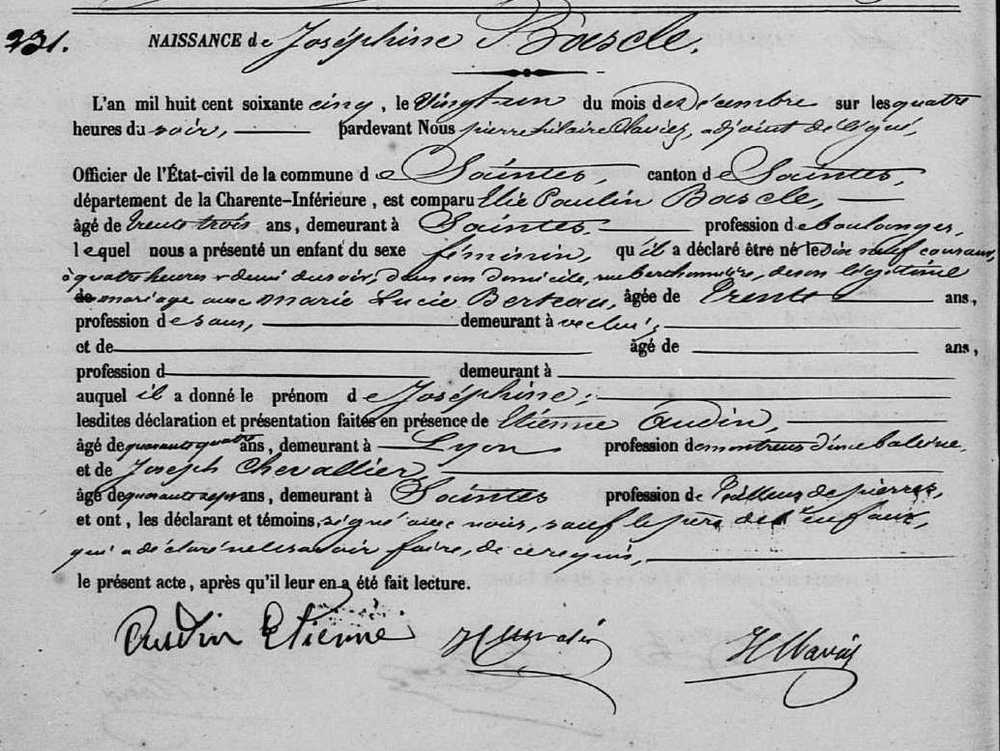 231. NAISSANCE de Joséphine Bascle.
L'an mil huit cent soixante cinq, le Vingt un du mois de Décembre sur les quatre
heures du soir, pardevant Nous pierre hilaire Clavier, adjoint délégué,
Officier de l'État-civil de la commune de Saintes, canton de Saintes,
département de la Charente-Inférieure, est comparu Elie Paulin Bascle,
âgé de trente trois ans, demeurant à Saintes. profession de boulanger,
lequel nous a présenté un enfant du sexe féminin, qu'il a déclaré être né le dix neuf courant,
à quatre heures & demi du soir, dans son domicile, rue de son légitime
mariage avec marie Lucie Berteau, âgée de trente ans,
profession de sans, demeurant à
et de âgé de ans,
profession d demeurant à
auquel il a donné le prénom de Joséphine;
lesdites déclaration et présentation faites en présence de Etienne Audin,
âgé de quarante quatre ans, demeurant à Lyon profession de montreur d'une baleine.
et de Joseph Chevallier,
âgé de quarante sept ans, demeurant à Saintes profession de tailleur de pierres,
et ont, les déclarant et témoins, signé avec nous, sauf le père de l'enfant,
qui a déclaré ne le savoir faire, de ce requis,
le présent acte, après qu'il leur en a été fait lecture.
Audin Etienne